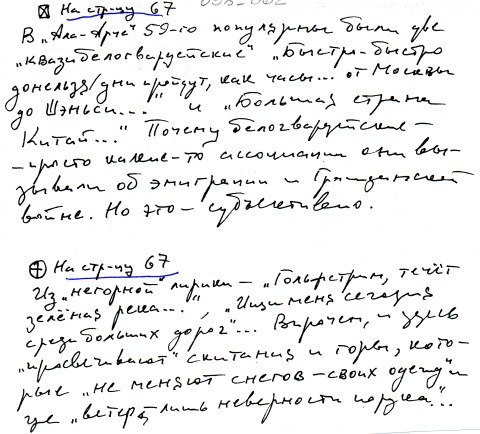 На стр-цу 67
В „Ала-Арче" 59-го популярны были две
„квазибелогвардейские" „Быстро-быстро
донельзя/дни пройдут, как часы... от Москвы
до Шэньси..." и „Большая страна
Китай..." Почему белогвардейские –
– просто какие-то ассоциации они вы-
зывали об эмиграции и Гражданской
войне. Но это – субъективно.
На стр-цу 67
Из „негорной" лирики – „Гольфстрим, течёт
зелёная река...", „Ищи меня сегодня
среди больших дорог"... Впрочем, и здесь
„просвечивают" скитания и горы, кото-
рые „не меняют снегов – своих одежд" и
где „ветер лишь неверности порука"...